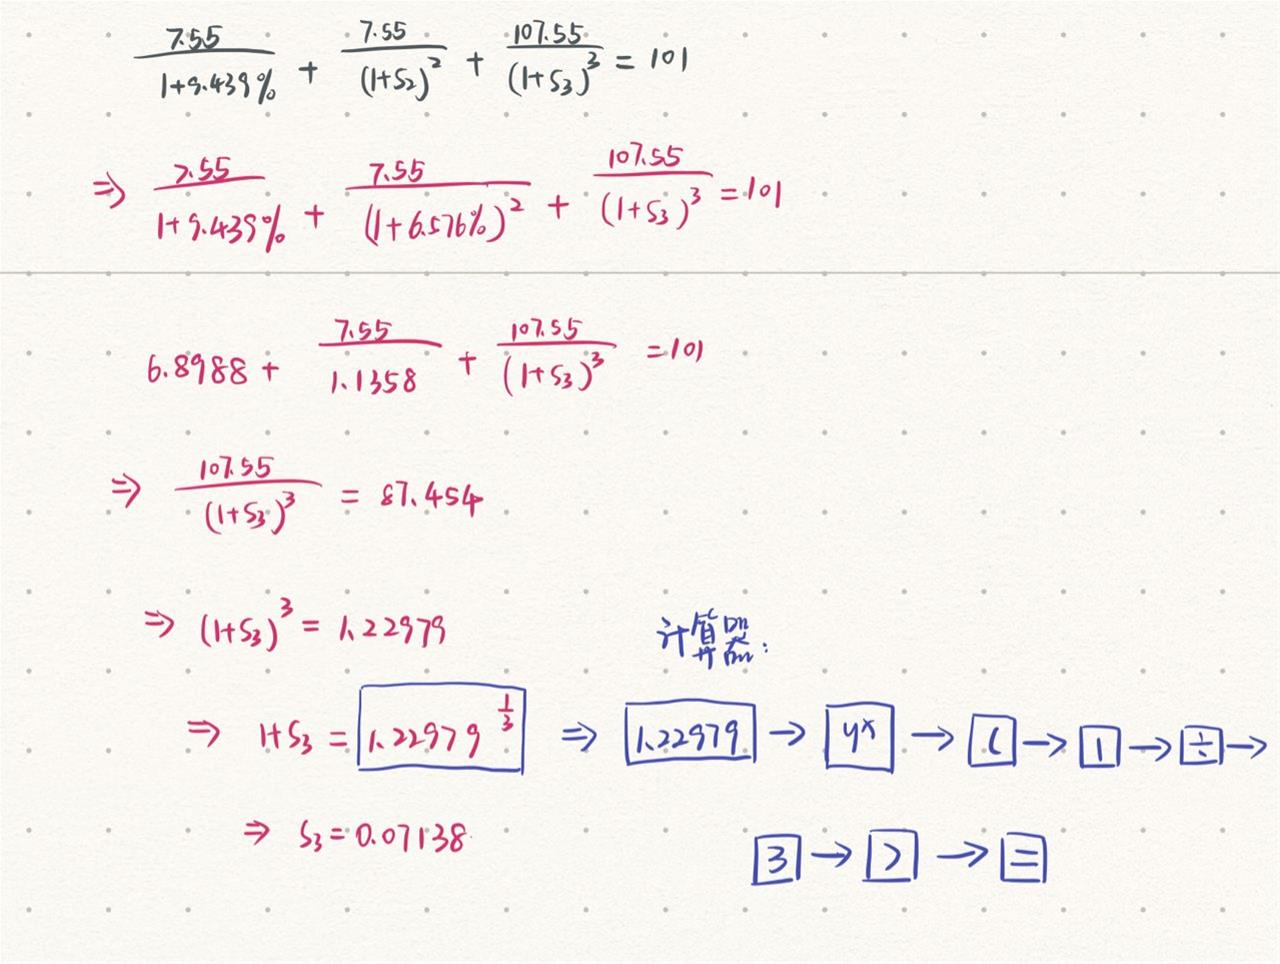 7.55/(1+9.439%) + 7.55/(1+S₂)² + 107.55/(1+S₃)³ = 101
⇒ 7.55/(1+9.439%) + 7.55/(1+6.576%)² + 107.55/(1+S₃)³ = 101
6.8988 + 7.55/1.1358 + 107.55/(1+S₃)³ = 101
⇒ 107.55/(1+S₃)³ = 87.454
⇒ (1+S₃)³ = 1.22979
计算器:
⇒ 1+S₃ = 1.22979^(1/3) ⇒ 1.22979 → yˣ → ( → 1 → ÷ →
⇒ S₃ = 0.07138
3 → ) → =